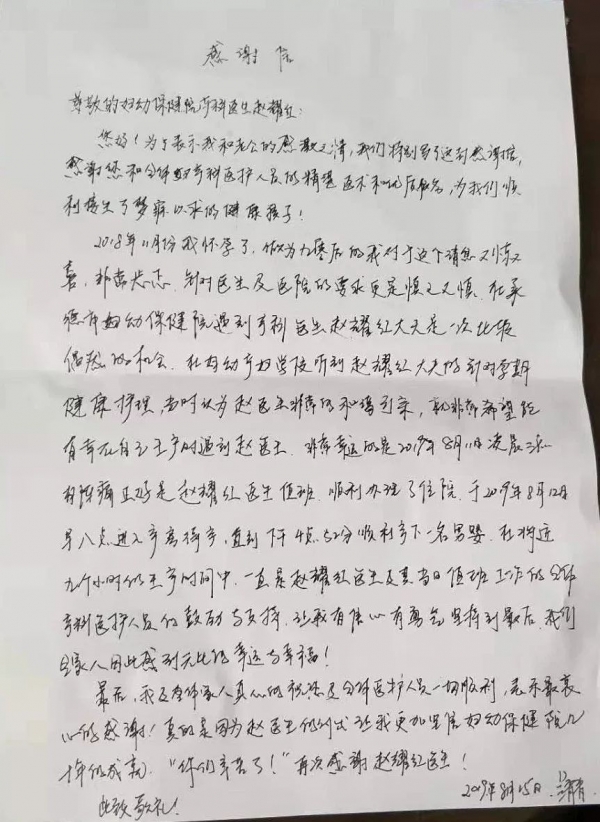 感谢信
尊敬的妇幼保健院产科医生赵耀红：
您好！为了表示我和老公的感激之情，我们特别写了这封感谢信，
感谢您和全体产科医护人员的精湛医术和优质服务，为我们顺
利接生了梦寐以求的健康孩子！
2018年11月份我怀孕了，做为九零后的我对于这个消息又惊又
喜，非常忐忑，针对医生及医院的要求更是慎之又慎，在承
德市妇幼保健院遇到产科医生赵耀红大夫是一次比较
偶然的机会，在妇幼孕妇学校听到赵耀红大夫的针对孕期
健康护理，当时认为赵医生非常的和蔼可亲，就非常希望能
有幸在自己生产时遇到赵医生，非常幸运的是2019年8月11日凌晨三点
有阵痛正好是赵耀红医生值班，顺利办理了住院，于2019年8月12日
早八点进入产房待产，直到下午4点52分顺利产下一名男婴，在将近
九个小时的生产时间中，一直是赵耀红医生及其当日值班工作的全部
产科医护人员的鼓励与支持，让我有信心有勇气坚持到最后，我们
全家人因此感到无比的幸运与幸福！
最后，我及全体家人真心的祝愿全体医护人员一切顺利，表示最衷
心的感谢！真的是因为赵医生的付出让我更加坚信妇幼保健院几
十年的成就，“你们辛苦了！”再次感谢赵耀红医生！
此致敬礼！
2019年8月15日